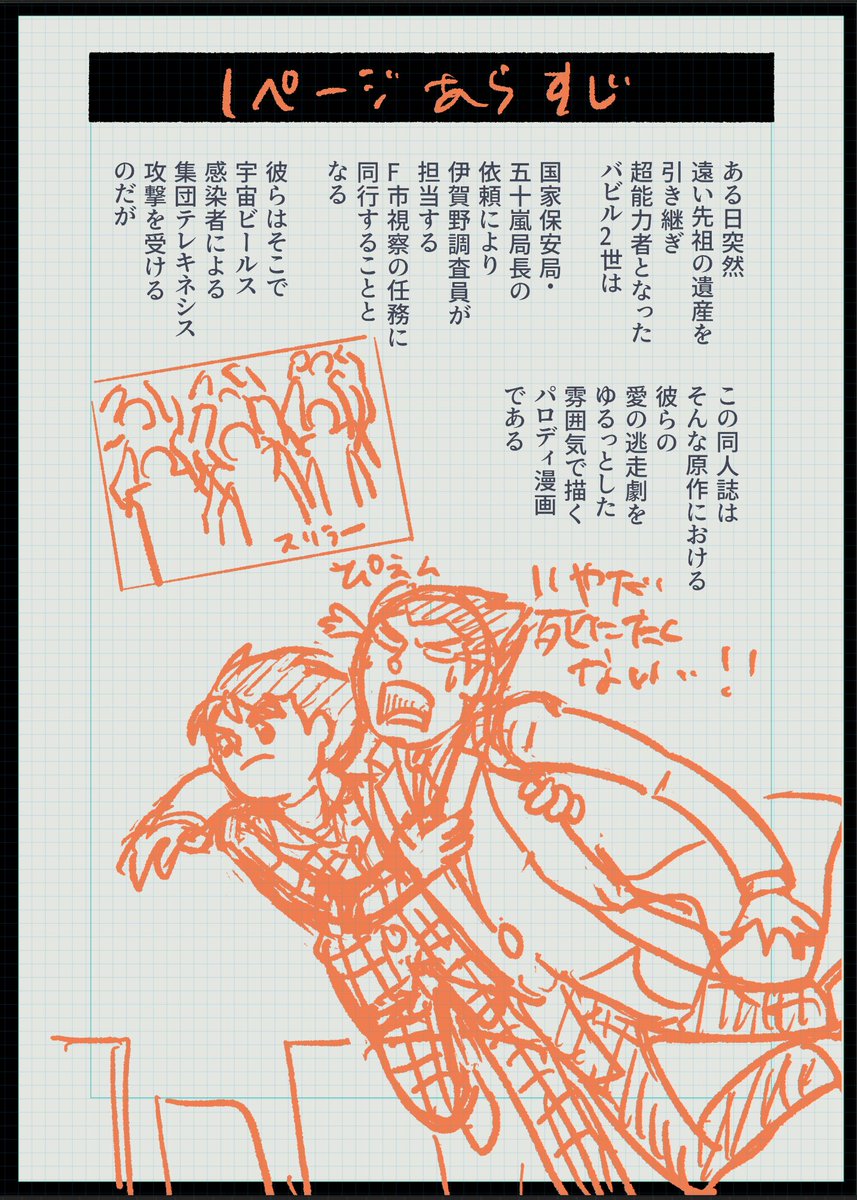 1ページあらすじ
ある日突然
遠い先祖の遺産を
引き継ぎ
超能力者となった
バビル2世は
国家保安局・
五十嵐局長の
依頼により
伊賀野調査員が
担当する
F市視察の任務に
同行することと
なる
彼らはそこで
宇宙ビールス
感染者による
集団テレキネシス
攻撃を受ける
のだが
この同人誌は
そんな原作における
彼らの
愛の逃走劇を
ゆるっとした
雰囲気で描く
パロディ漫画
である
スリラー
ぴえん
いやだ
死にたく
ない…!!